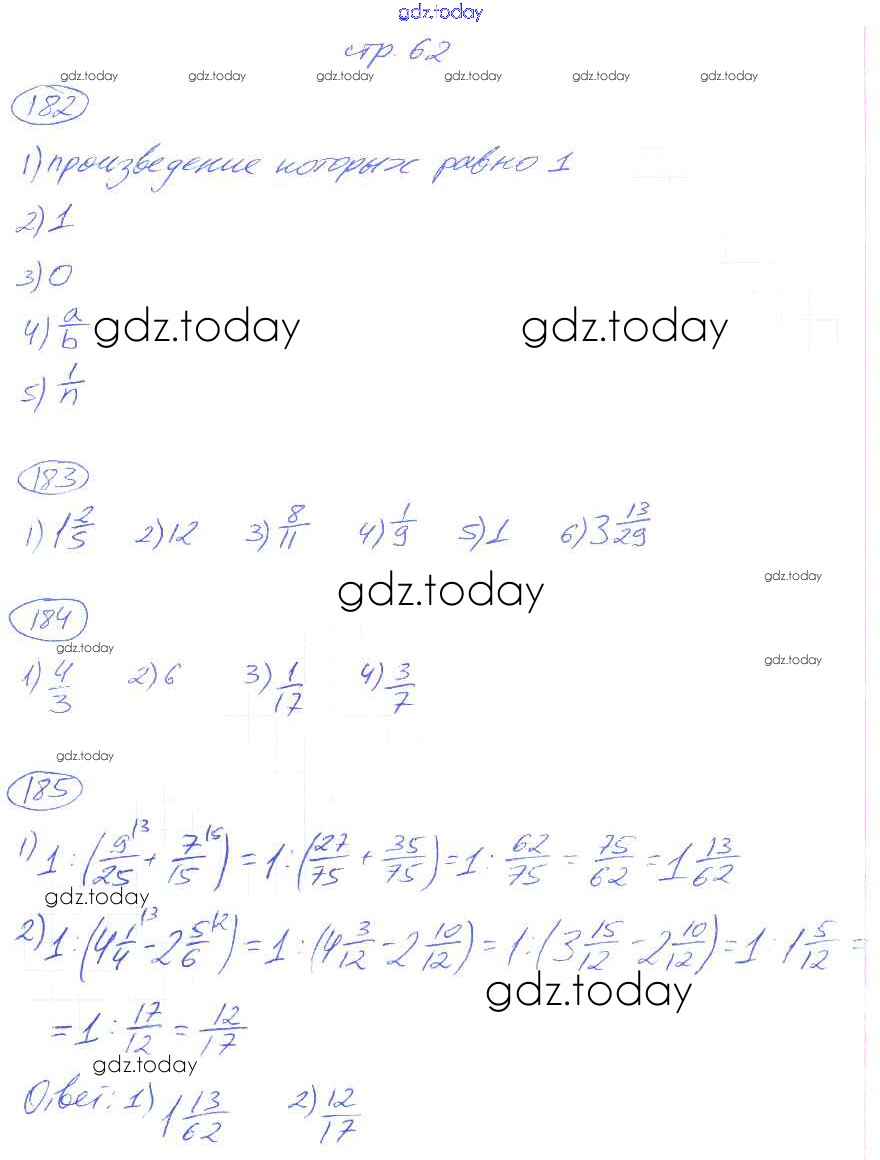 gdz.today
стр. 62
gdz.today gdz.today gdz.today gdz.today gdz.today gdz.today
182
1) произведение которых равно 1
2) 1
3) 0
4) a/b gdz.today gdz.today
5) 1/n
183
1) 1 2/5 2) 12 3) 8/11 4) 1/9 5) 1 6) 3 13/29
gdz.today gdz.today
184
gdz.today gdz.today
1) 4/3 2) 6 3) 1/17 4) 3/7
gdz.today
185
1) 1 : (9/25 |3 + 7/15 |5) = 1 : (27/75 + 35/75) = 1 : 62/75 = 75/62 = 1 13/62
gdz.today
2) 1 : (4 1/4 |3 - 2 5/6 |2) = 1 : (4 3/12 - 2 10/12) = 1 : (3 15/12 - 2 10/12) = 1 : 1 5/12 =
gdz.today
= 1 : 17/12 = 12/17
gdz.today
Ответ: 1) 1 13/62 2) 12/17